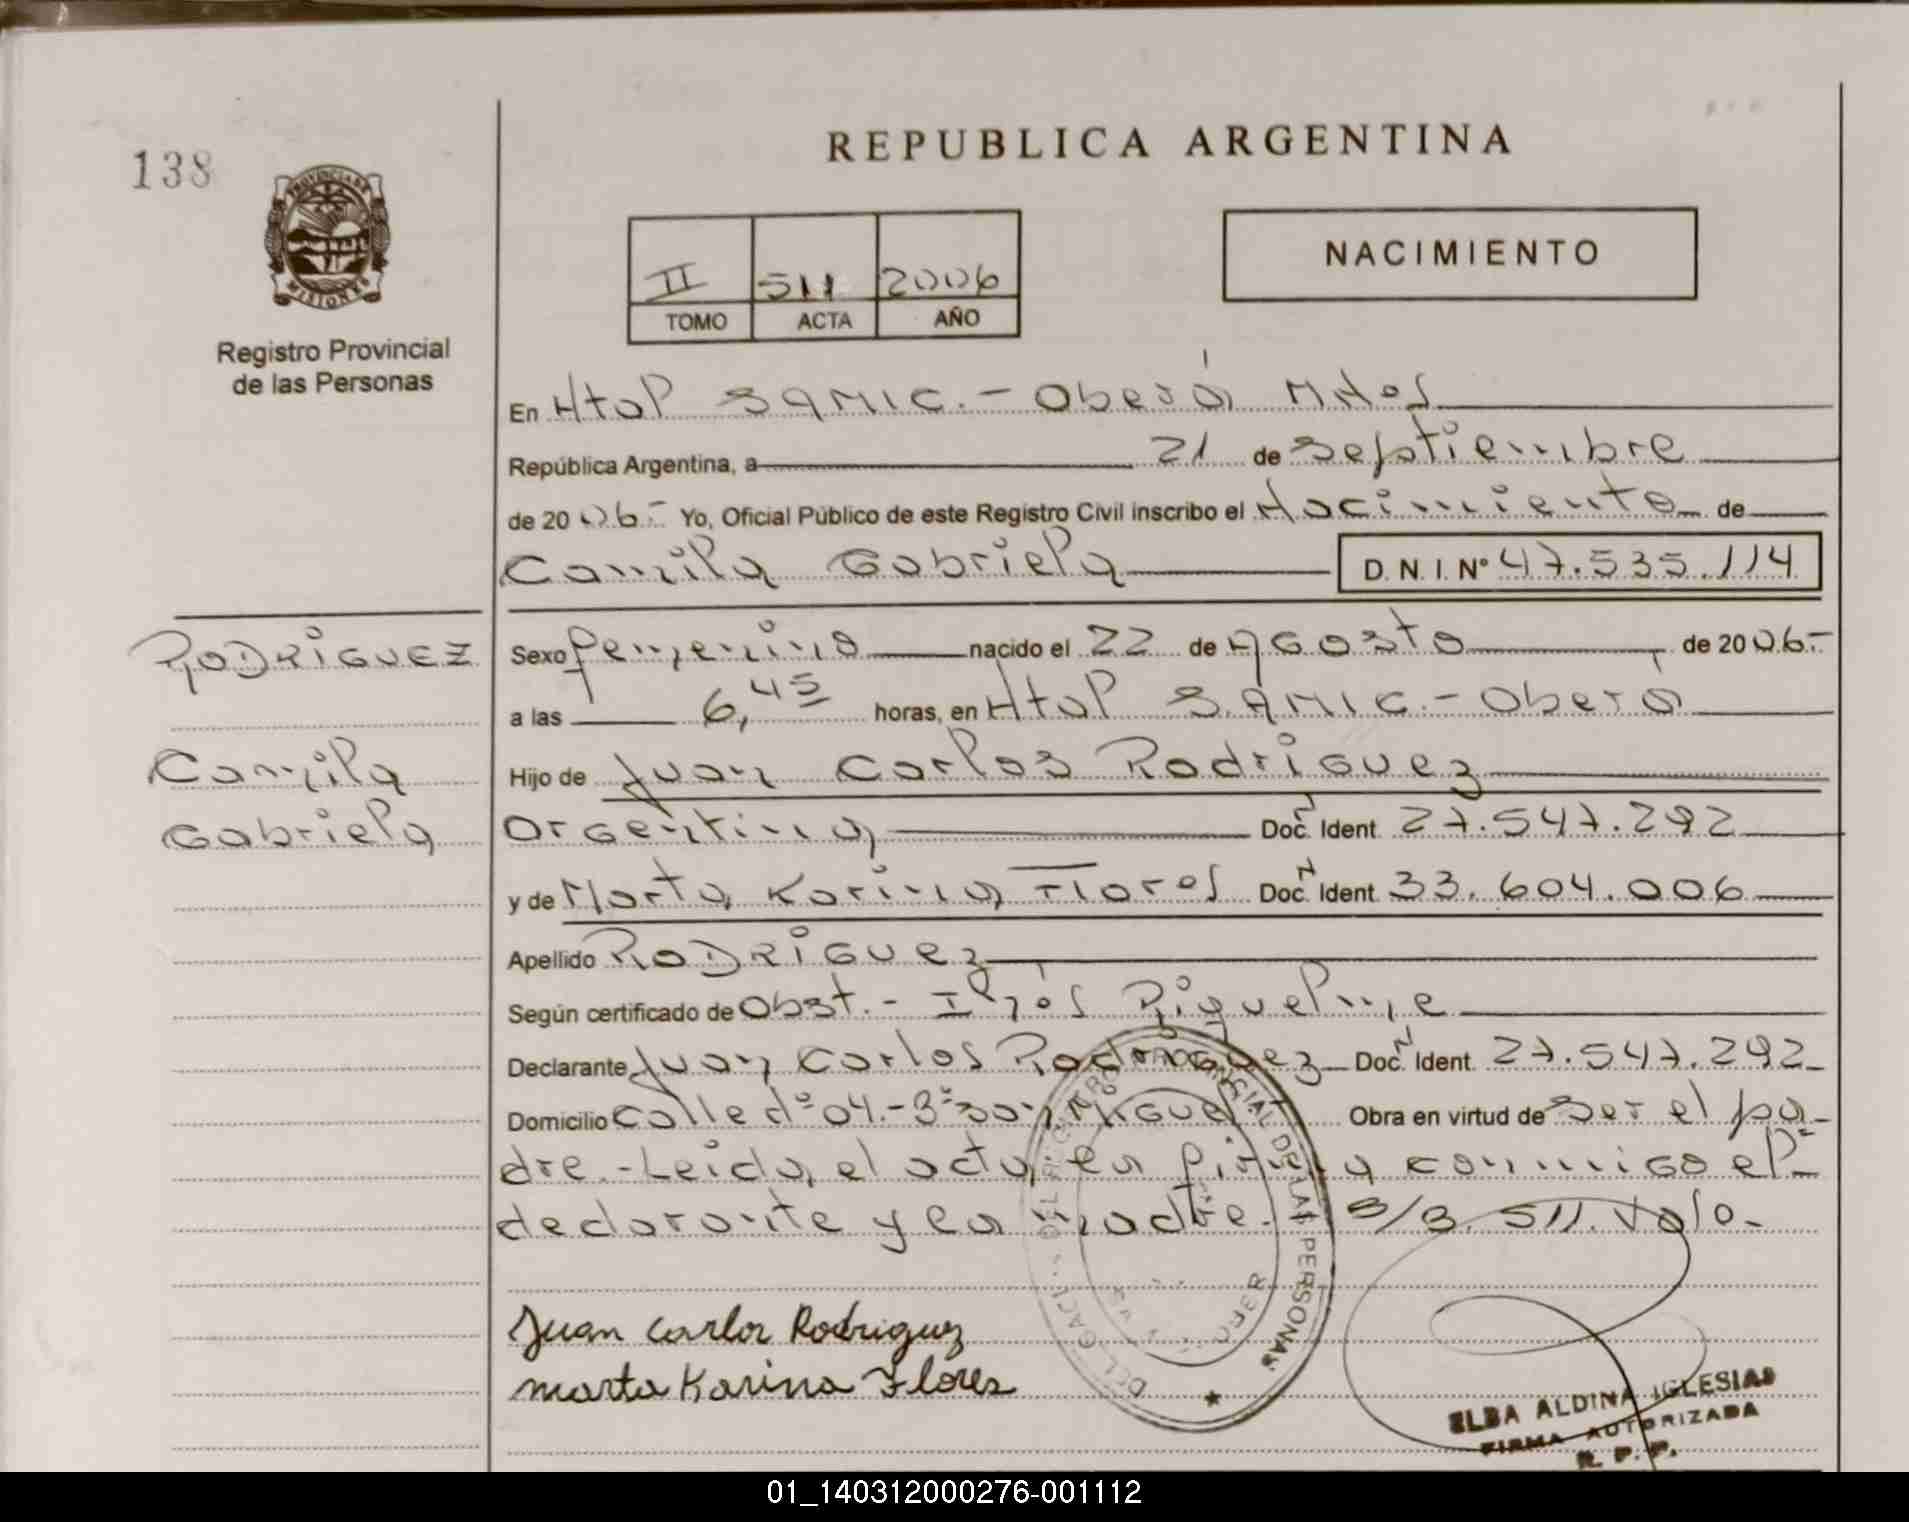 138
REPUBLICA ARGENTINA
PROVINCIA DE
MISIONES
Registro Provincial
de las Personas
II 511 2006
TOMO ACTA AÑO
NACIMIENTO
En Htal SAMIC.- Oberá Mnes
República Argentina, a 21 de septiembre
de 2006.- Yo, Oficial Público de este Registro Civil inscribo el Nacimiento de
Camila Gabriela D.N.I. Nº 47.535.114
RODRIGUEZ
Camila
Gabriela
Sexo femenino nacido el 22 de Agosto de 2006.-
a las 6,45 horas, en Htal SAMIC.- Oberá
Hijo de Juan Carlos Rodriguez
Argentina Doc. N Ident. 27.547.292
y de Marta Karina Flores Doc. N Ident. 33.604.006
Apellido RODRIGUEZ
Según certificado de Obst.- Inés Riquelme
Declarante Juan Carlos Rodriguez Doc. N Ident. 27.547.292
Domicilio Calle dº 04.- Bº San Miguel Obra en virtud de ser el pa-
dre.- Leida el acta la firma conmigo el
declarante y la madre. S/B. 511. Vale.-
Juan Carlos Rodriguez
Marta Karina Flores
DEL REGISTRO PROVINCIAL DE LAS PERSONAS
ELBA ALDINA IGLESIAS
FIRMA AUTORIZADA
R. P. P.
01_140312000276-001112